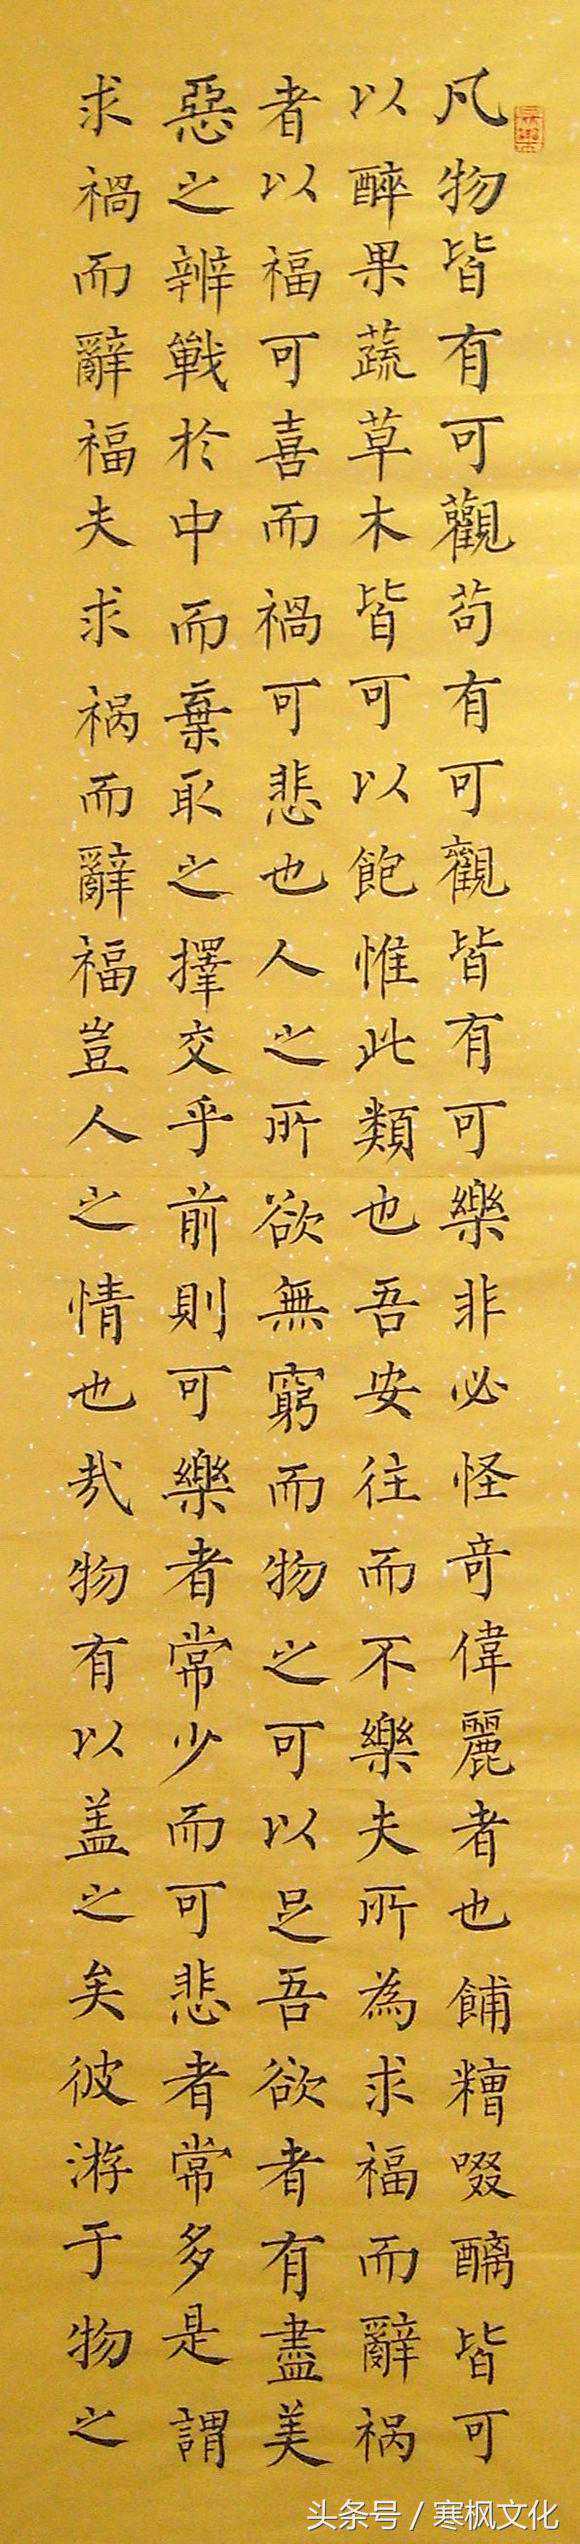 凡物皆有可觀苟有可觀皆有可樂非必怪奇偉麗者也餔糟啜醨皆可
以醉果蔬草木皆可以飽惟此類也吾安往而不樂夫所為求福而辭祸
者以福可喜而禍可悲也人之所欲無窮而物之可以足吾欲者有盡美
惡之辨戰於中而棄取之擇交乎前則可樂者常少而可悲者常多是謂
求禍而辭福夫求祸而辭福豈人之情也哉物有以盖之矣彼游于物之
头条号 / 寒枫文化